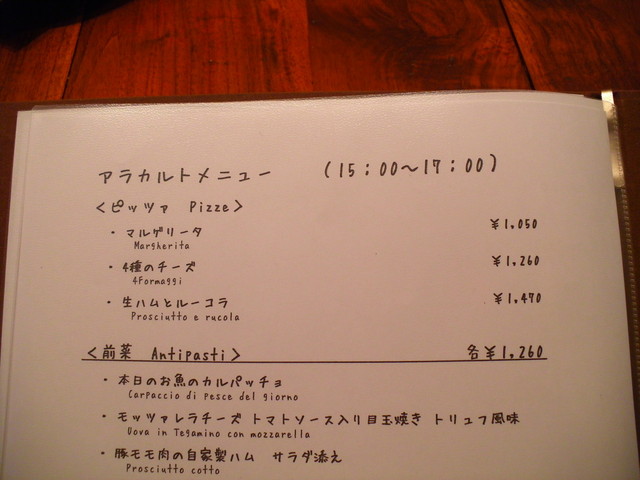 アラカルトメニュー (15:00～17:00)
<ピッツァ Pizze>
・マルゲリータ ¥1,050
Margherita
・4種のチーズ ¥1,260
4Formaggi
・生ハムとルーコラ ¥1,470
Prosciutto e rucola
<前菜 Antipasti> 各¥1,260
・本日のお魚のカルパッチョ
Carpaccio di pesce del giorno
・モッツァレラチーズ トマトソース入り目玉焼き トリュフ風味
Uova in Tegamino con mozzarella
・豚モモ肉の自家製ハム サラダ添え
Prosciutto cotto